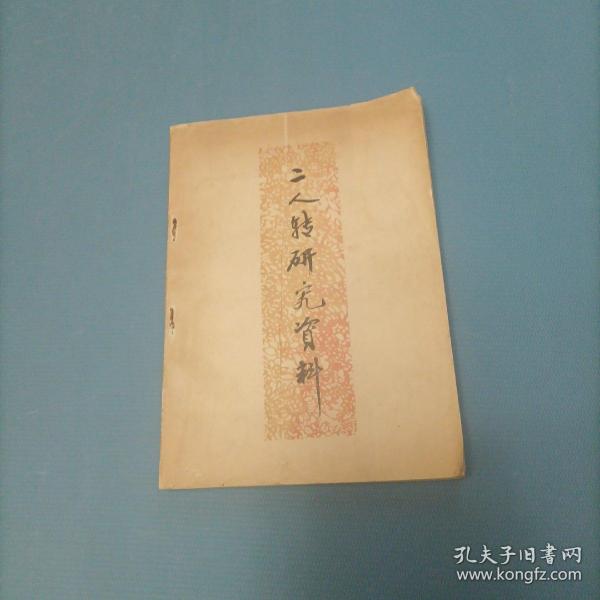 二人转研究資料
孔夫子旧書网
www.kongfz.com